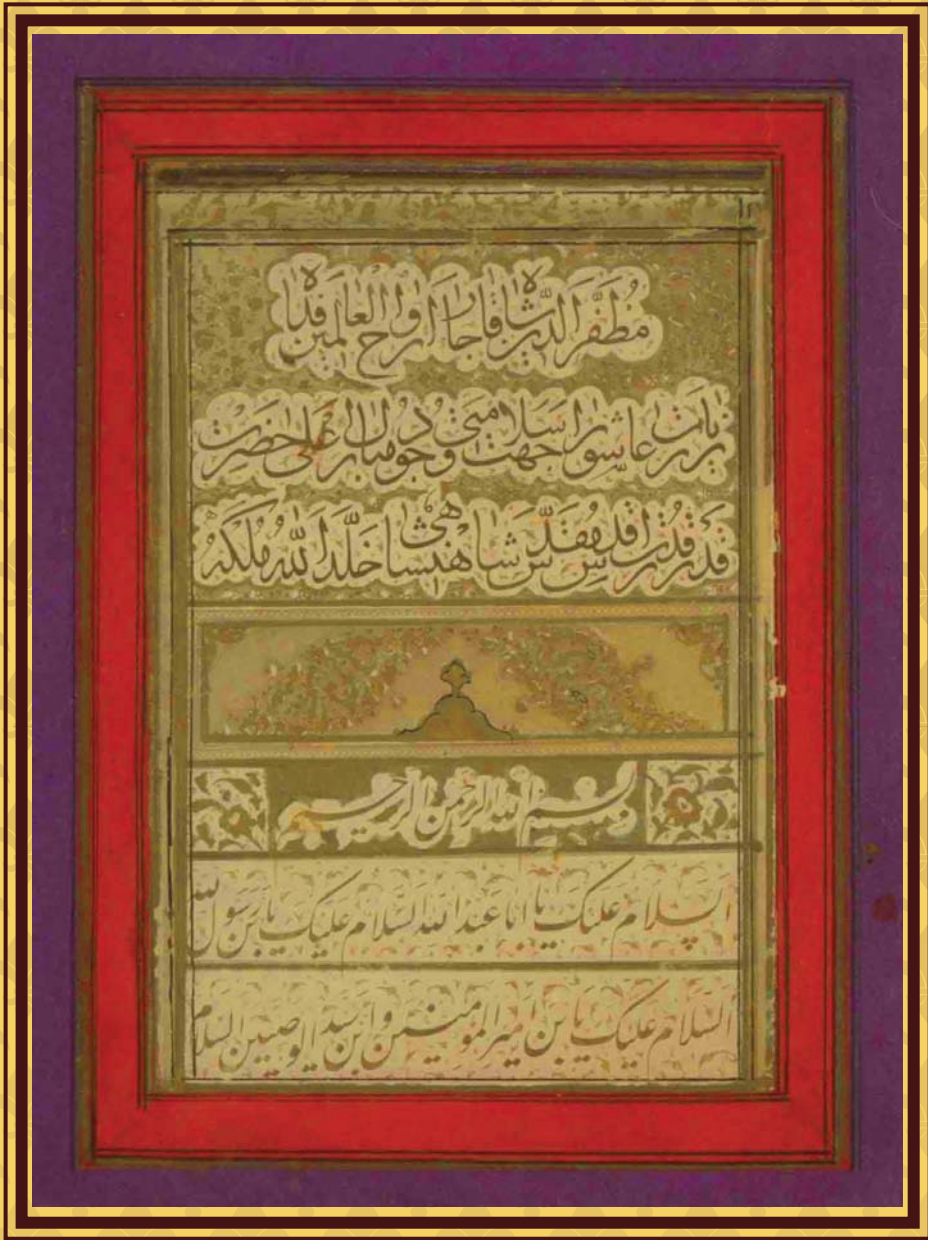 مُظَفَّرالدّین شاه قاجار ارواح العالمین فداه
زیارت عاشورا جهت سلامتی وجود مبارک اعلی حضرت
قدر قُدرت اقدس مُقدّس شاهنشاهی خلّد الله مُلکهُ
بسم الله الرحمن الرحیم
السلام علیک یا ابا عبد الله السّلام علیک یابن رسول الله
السلام علیک یابن امیر المومنین وابن سید الوصیین السلام